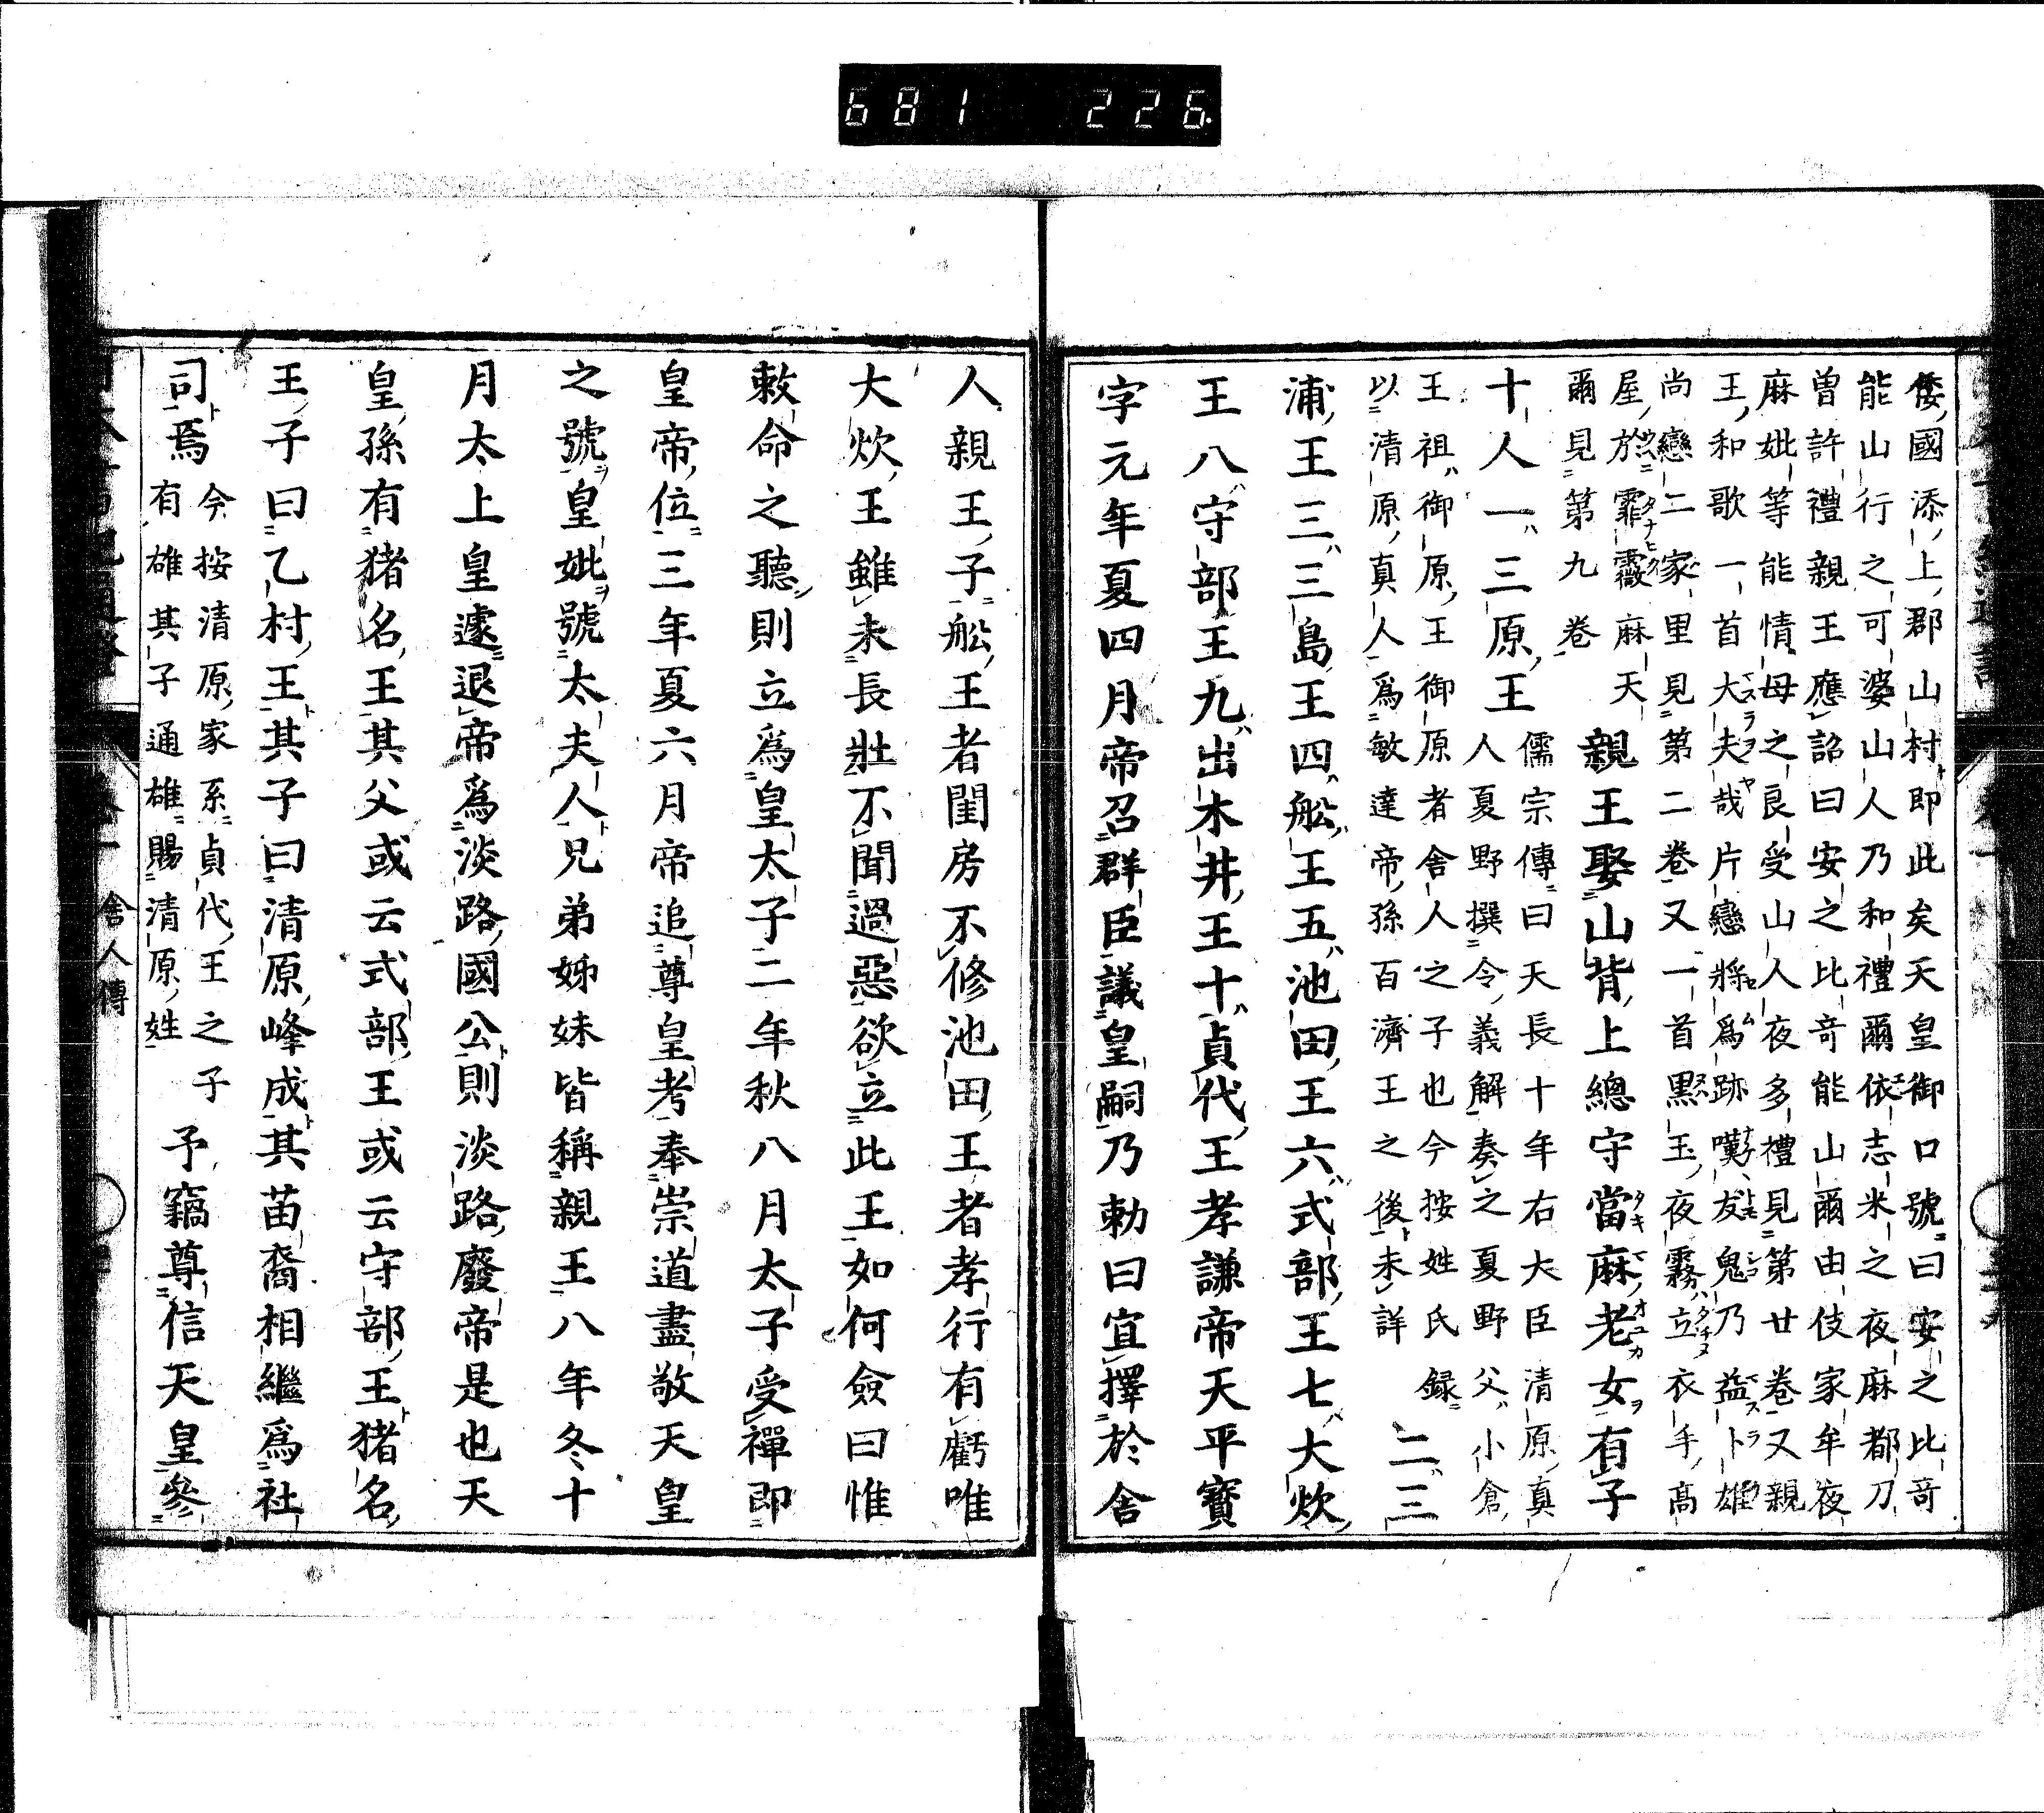 681 226
倭國添上郡山村即此矣天皇御口號曰安之比奇
能山行之可婆山人乃和禮爾依志米之夜麻都刀
曽許禮親王應詔曰安之比奇能山爾由伎家牟夜
麻妣等能情母之良受山人夜多禮見第廿卷又親
王和歌一首大夫哉片戀將爲跡嘆友鬼乃益卜雄
尚戀二家里見第二卷又一首黙玉夜霧立衣手高
屋於霏霺麻天
爾見第九卷
親王娶山背上總守當麻老女有子
十人一三原王
儒宗傳曰天長十年右大臣清原真
人夏野撰令義解奏之夏野父小倉
王祖御原王御原者舎人之子也今按姓氏録
以清原真人爲敏達帝孫百濟王之後未詳
二三
浦王三三島王四船王五池田王六式部王七大炊
王八守部王九出木井王十貞代王孝謙帝天平寶
字元年夏四月帝召群臣議皇嗣乃勅曰宜擇於舎
人親王子船王者閨房不修池田王者孝行有虧唯
大炊王雖未長壯不聞過惡欲立此王如何僉曰惟
敕命之聽則立爲皇太子二年秋八月太子受禪即
皇帝位三年夏六月帝追尊皇考奉崇道盡敬天皇
之號皇妣號太夫人兄弟姊妹皆稱親王八年冬十
月太上皇遽退帝爲淡路國公則淡路廢帝是也天
皇孫有猪名王其父或云式部王或云守部王猪名
王子曰乙村王其子曰清原峰成其苗裔相繼爲社
司焉
今按清原家系貞代王之子
有雄其子通雄賜清原姓
予竊尊信天皇參
舎人傳